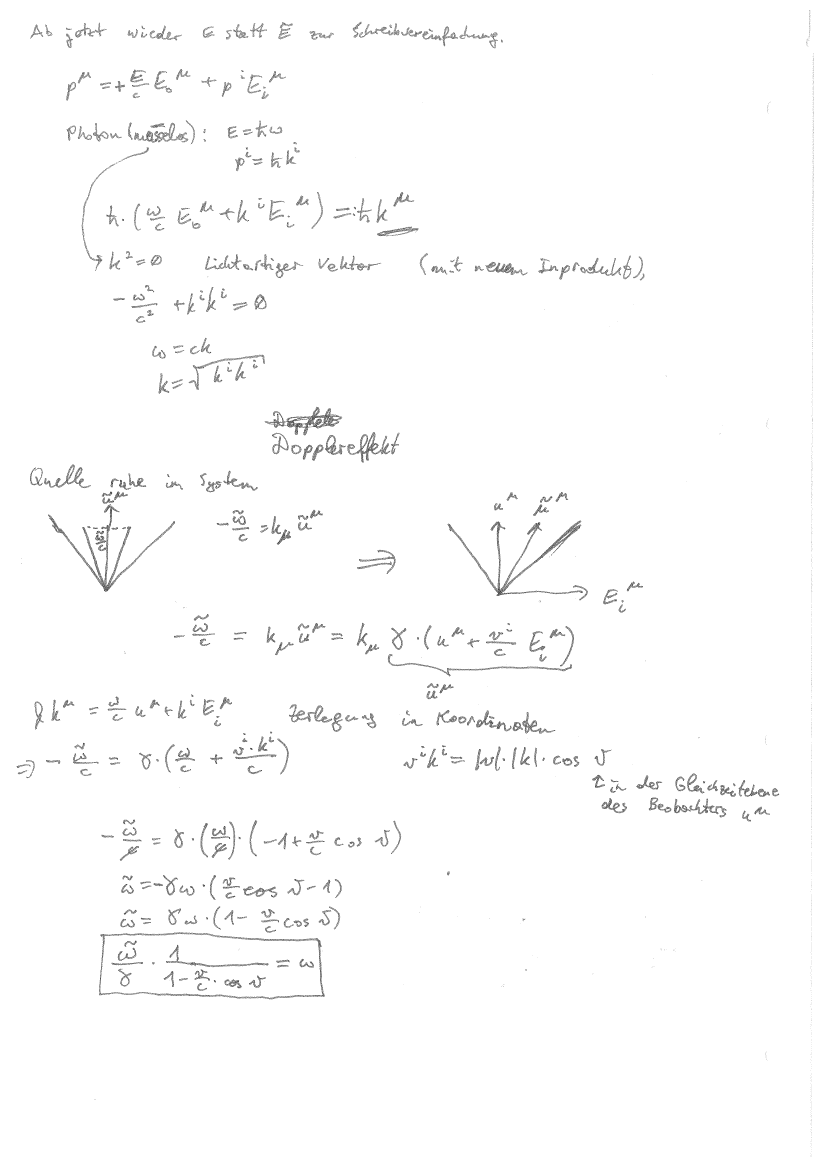 Ab jetzt wieder E statt Ẽ zur Schreibvereinfachung.
p^μ = + E/c E_0^μ + p^i E_i^μ
Photon (masselos): E = ħω
p^i = ħk^i
ħ · (ω/c E_0^μ + k^i E_i^μ) =: ħ k^μ
→ k² = 0 Lichtartiger Vektor (mit neuem Inprodukt),
- ω²/c² + k^i k^i = 0
ω = ck
k = √(k^i k^i)
Dopplereffekt
Quelle ruhe im System
ũ^μ
ω̃/c
- ω̃/c = k_μ ũ^μ
⇒
u^μ ũ^μ
E_i^μ
- ω̃/c = k_μ ũ^μ = k_μ γ · (u^μ + v^i/c E_i^μ)
ũ^μ
k^μ = ω/c u^μ + k^i E_i^μ Zerlegung in Koordinaten
⇒ - ω̃/c = γ · (ω/c + v^i · k^i/c) v^i k^i = |v| · |k| · cos ϑ
↑ in der Gleichzeitebene
des Beobachters u^μ
- ω̃/c = γ · (ω/c) · (-1 + v/c cos ϑ)
ω̃ = -γω · (v/c cos ϑ - 1)
ω̃ = γω · (1 - v/c cos ϑ)
ω̃/γ · 1/(1 - v/c · cos ϑ) = ω